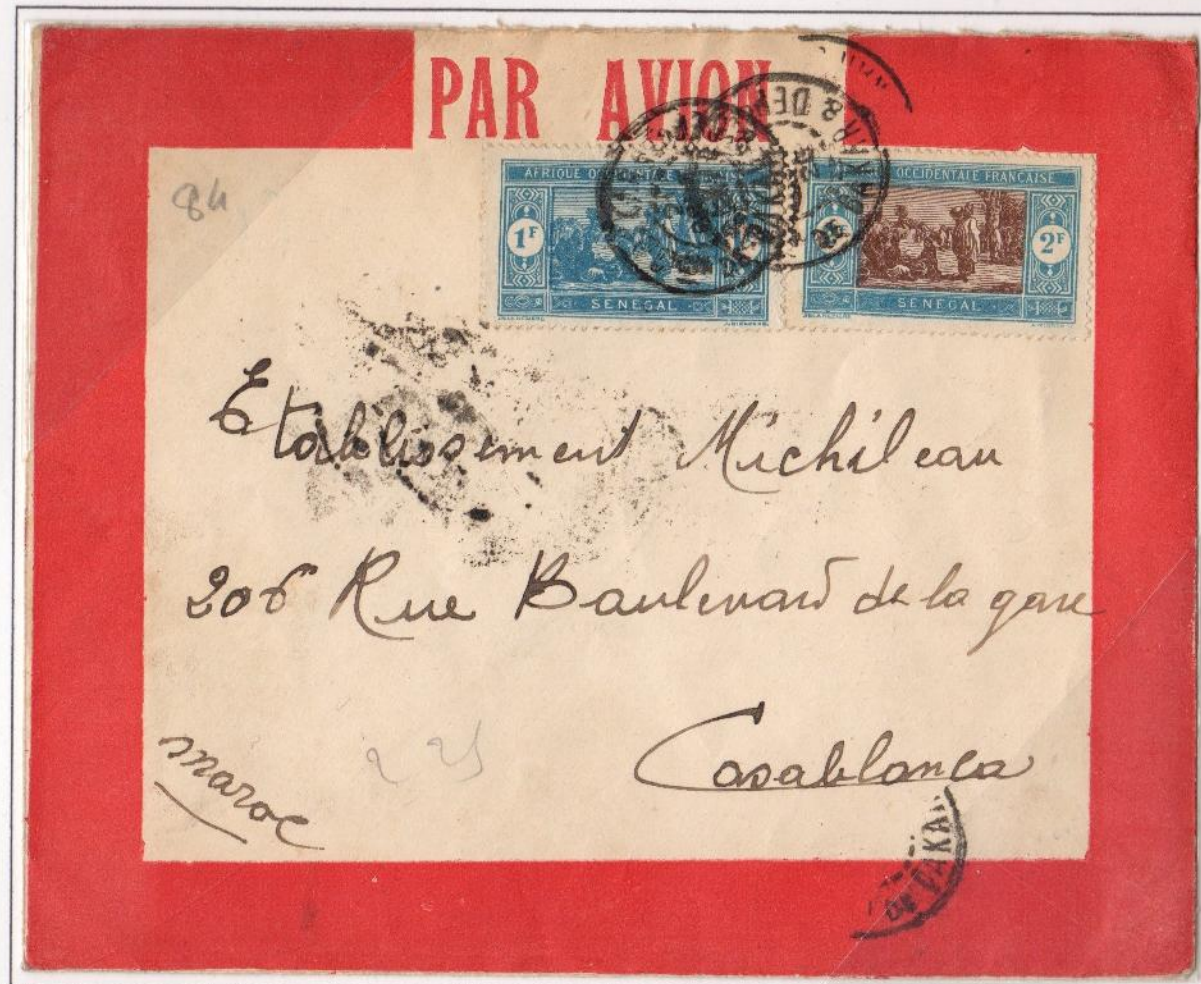 PAR AVION
84
AFRIQUE OCCIDENTALE
1F
SENEGAL
OCCIDENTALE FRANÇAISE
2F
2F
SENEGAL
& DEP
Etablissement Michileau
206 Rue Baulevard de la gare
Casablanca
maroc
DAKA